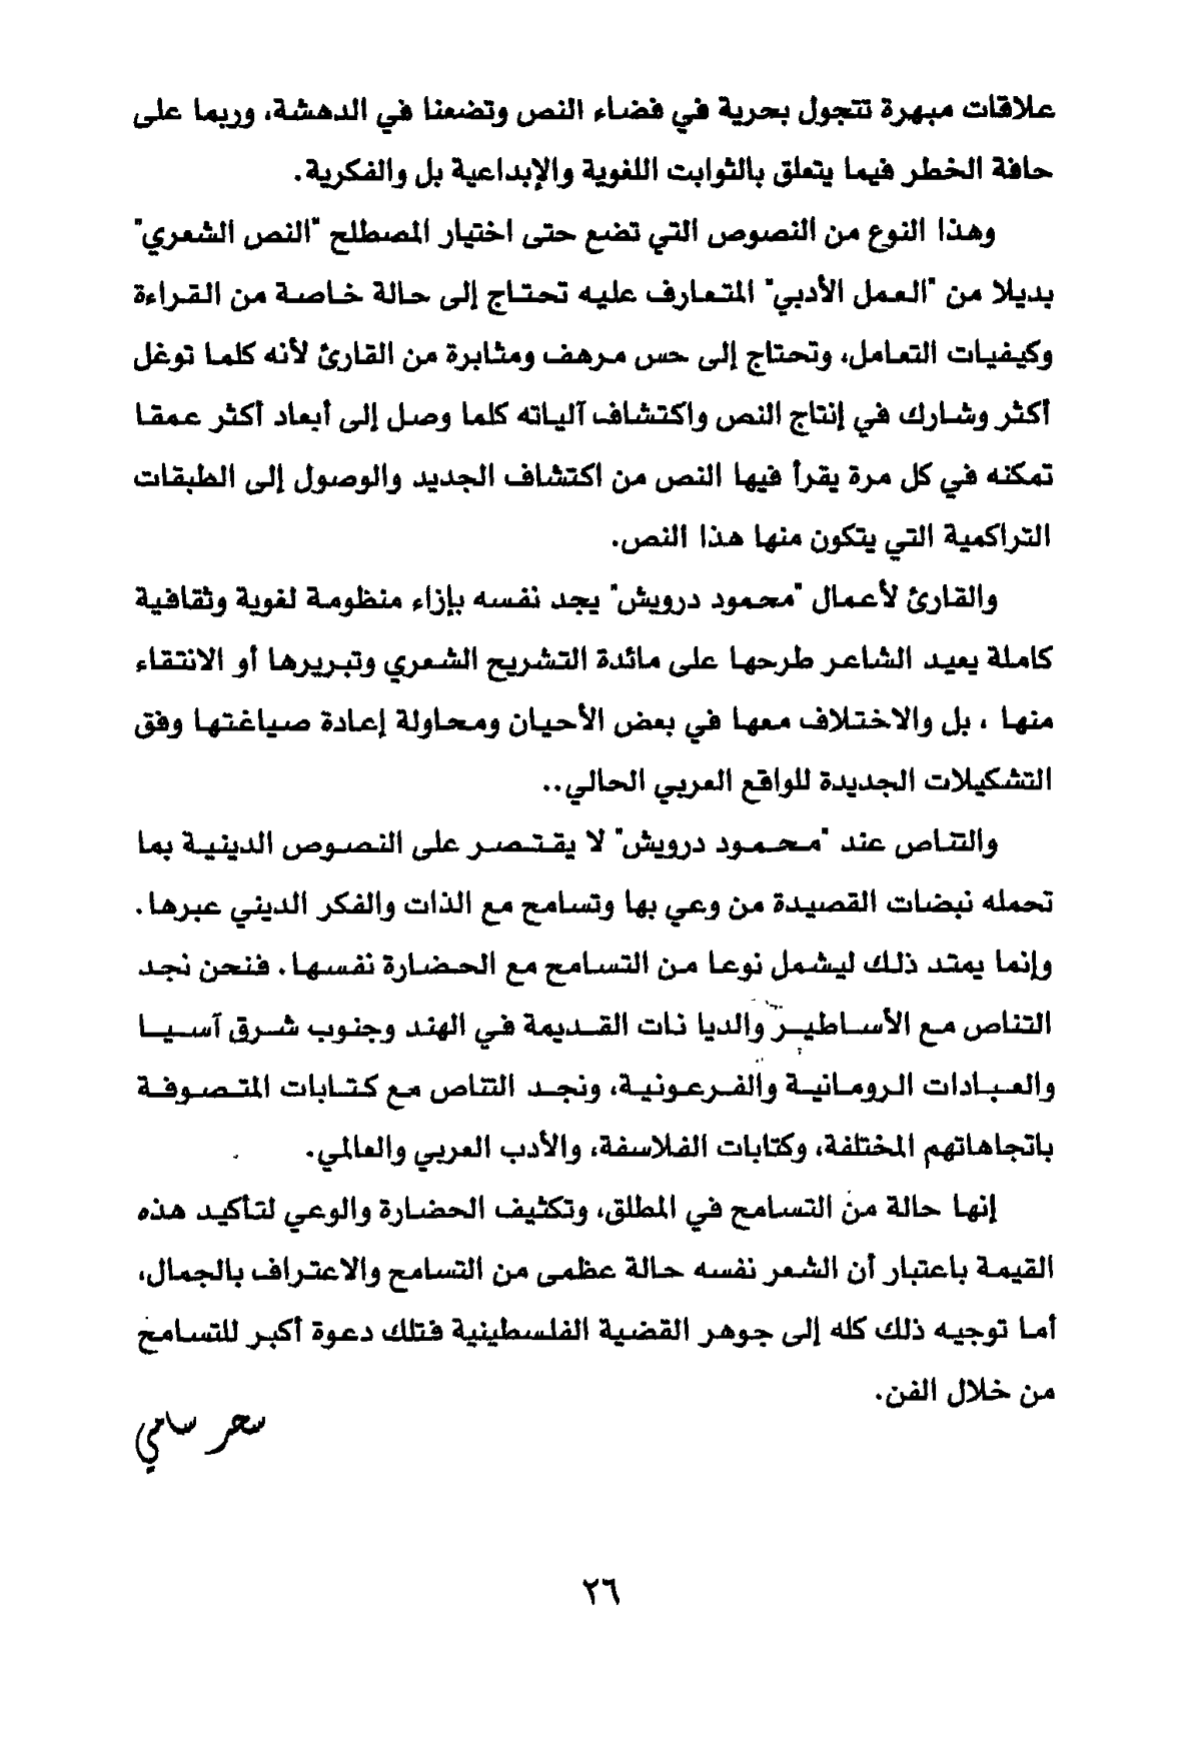 علاقات مبهرة تتجول بحرية في فضاء النص وتضعنا في الدهشة، وربما على
حافة الخطر فيما يتعلق بالثوابت اللغوية والإبداعية بل والفكرية.
وهذا النوع من النصوص التي تضع حتى اختيار المصطلح "النص الشعري"
بديلا من "العمل الأدبي" المتعارف عليه تحتاج إلى حالة خاصة من القراءة
وكيفيات التعامل، وتحتاج إلى حس مرهف ومثابرة من القارئ لأنه كلما توغل
أكثر وشارك في إنتاج النص واكتشاف آلياته كلما وصل إلى أبعاد أكثر عمقا
تمكنه في كل مرة يقرأ فيها النص من اكتشاف الجديد والوصول إلى الطبقات
التراكمية التي يتكون منها هذا النص.
والقارئ لأعمال "محمود درويش" يجد نفسه بإزاء منظومة لغوية وثقافية
كاملة يعيد الشاعر طرحها على مائدة التشريح الشعري وتبريرها أو الانتقاء
منها ، بل والاختلاف معها في بعض الأحيان ومحاولة إعادة صياغتها وفق
التشكيلات الجديدة للواقع العربي الحالي..
والتناص عند "محمود درويش" لا يقتصر على النصوص الدينية بما
تحمله نبضات القصيدة من وعي بها وتسامح مع الذات والفكر الديني عبرها.
وإنما يمتد ذلك ليشمل نوعا من التسامح مع الحضارة نفسها. فنحن نجد
التناص مع الأساطير والديا نات القديمة في الهند وجنوب شرق آسيا
والعبادات الرومانية والفرعونية، ونجد التناص مع كتابات المتصوفة
باتجاهاتهم المختلفة، وكتابات الفلاسفة، والأدب العربي والعالمي.
إنها حالة من التسامح في المطلق، وتكثيف الحضارة والوعي لتأكيد هذه
القيمة باعتبار أن الشعر نفسه حالة عظمى من التسامح والاعتراف بالجمال،
أما توجيه ذلك كله إلى جوهر القضية الفلسطينية فتلك دعوة أكبر للتسامح
من خلال الفن.
سحر سامي
٢٦